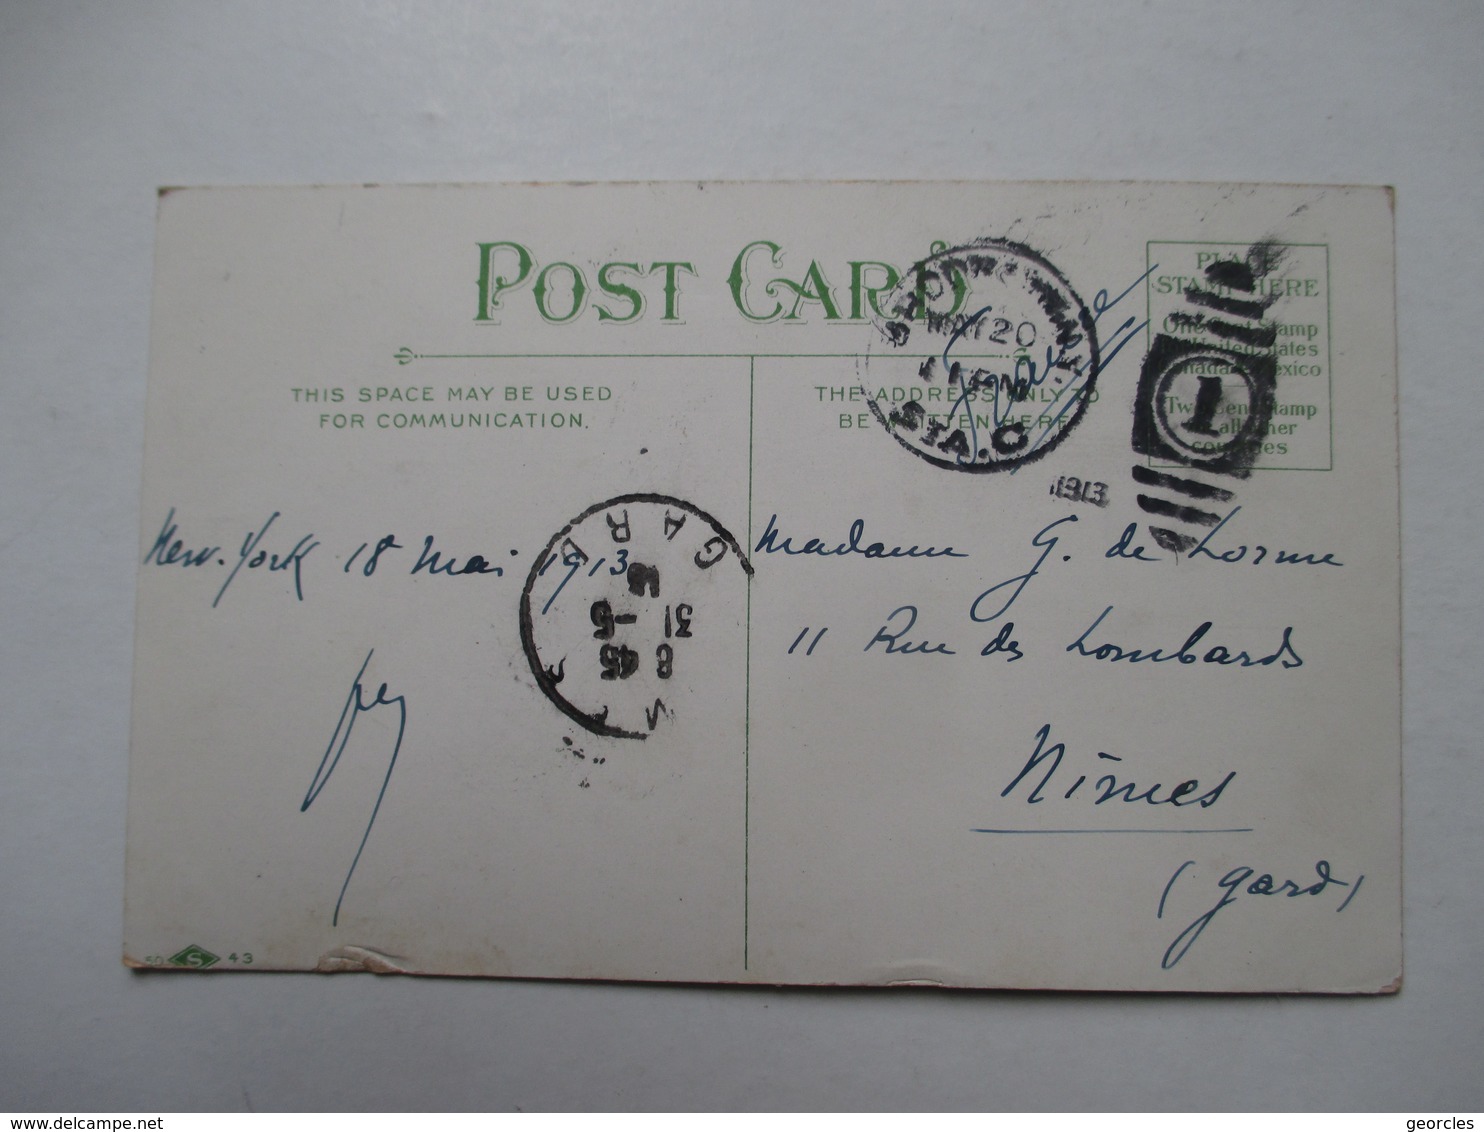 POST CARD
THIS SPACE MAY BE USED
FOR COMMUNICATION.
THE ADDRESS ONLY TO
BE WRITTEN HERE
STAMP HERE
One Cent Stamp
United States
Mexico
Two Cent Stamp
MAY 20
STA. C
1913
1
France
New-York 18 Mai 1913
GARD
8 45
31 -5
Madame G. de Lorme
11 Rue des Lombards
Nîmes
(Gard)
50 S 43
www.delcampe.net
georcles